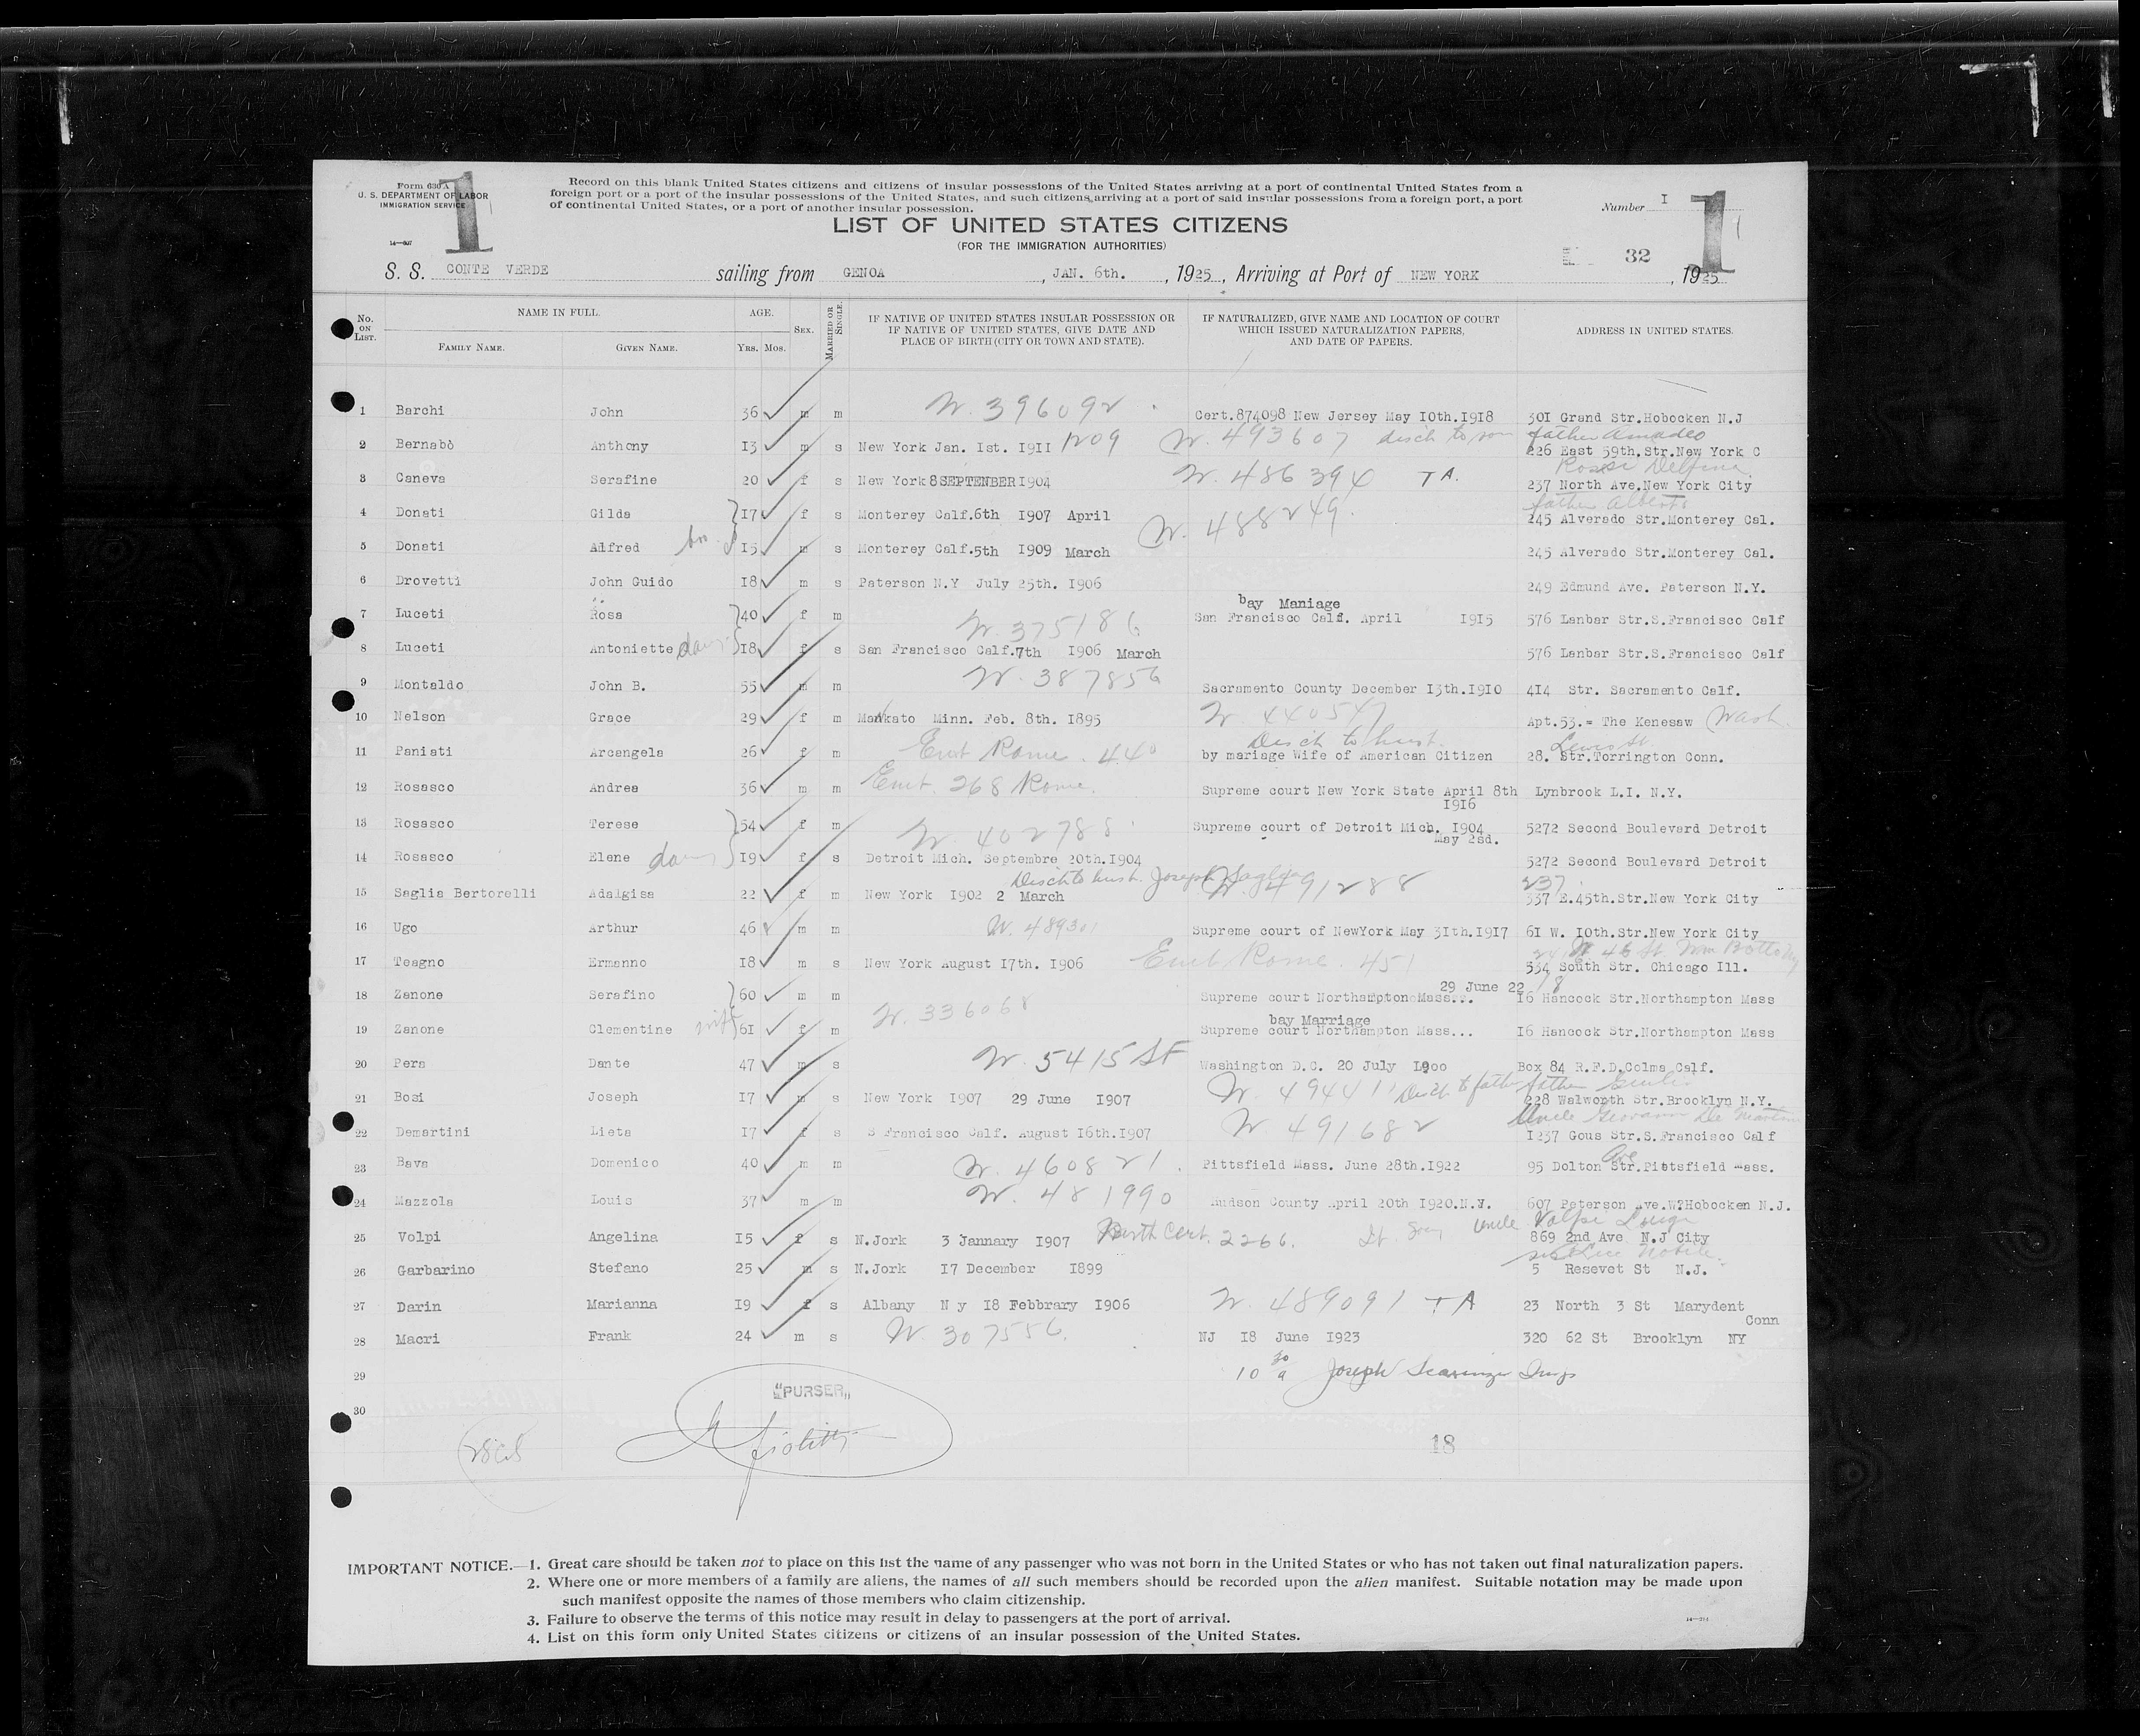 Form 630 A
U. S. DEPARTMENT OF LABOR
IMMIGRATION SERVICE
1
14—607
Record on this blank United States citizens and citizens of insular possessions of the United States arriving at a port of continental United States from a
foreign port or a port of the insular possessions of the United States, and such citizens arriving at a port of said insular possessions from a foreign port, a port
of continental United States, or a port of another insular possession.
Number I
1
LIST OF UNITED STATES CITIZENS
(FOR THE IMMIGRATION AUTHORITIES)
32
S. S. CONTE VERDE sailing from GENOA, JAN. 6th., 1925, Arriving at Port of NEW YORK, 1925
No. ON LIST. NAME IN FULL. AGE. SEX. MARRIED OR SINGLE. IF NATIVE OF UNITED STATES INSULAR POSSESSION OR IF NATIVE OF UNITED STATES, GIVE DATE AND PLACE OF BIRTH (CITY OR TOWN AND STATE). IF NATURALIZED, GIVE NAME AND LOCATION OF COURT WHICH ISSUED NATURALIZATION PAPERS, AND DATE OF PAPERS. ADDRESS IN UNITED STATES.
FAMILY NAME. GIVEN NAME. YRS. MOS.
1 Barchi John 36 m m W. 396092 Cert.874098 New Jersey May 10th.1918 301 Grand Str.Hobocken N.J
2 Bernabò Anthony 13 m s New York Jan. 1st. 1911 1209 W. 493607 disch to father Amadeo
226 East 59th.Str.New York C
3 Caneva Serafine 20 f s New York 8 SEPTENBER 1904 W. 486394 TA. Delfina
237 North Ave.New York City
4 Donati Gilda 17 f s Monterey Calf.6th 1907 April W. 488249. father Alberto
245 Alverado Str.Monterey Cal.
5 Donati Alfred bro 15 m s Monterey Calf.5th 1909 March 245 Alverado Str.Monterey Cal.
6 Drovetti John Guido 18 m s Paterson N.Y July 25th. 1906 249 Edmund Ave. Paterson N.Y.
7 Luceti Rosa 40 f m W. 375186 bay Maniage
San Francisco Calf. April 1915 576 Lanbar Str.S.Francisco Calf
8 Luceti Antoniette dau 18 f s San Francisco Calf.7th 1906 March 576 Lanbar Str.S.Francisco Calf
9 Montaldo John B. 55 m m W. 387856 Sacramento County December 13th.1910 414 Str. Sacramento Calf.
10 Nelson Grace 29 f m Mankato Minn. Feb. 8th. 1895 W. 440547 Apt.53.= The Kenesaw Wash.
11 Paniati Arcangela 26 f m Emb Rome. 440 Disch to husb. Lewis St
by mariage Wife of American Citizen 28. Str.Torrington Conn.
12 Rosasco Andrea 36 m m Emb. 268 Rome. Supreme court New York State April 8th Lynbrook L.I. N.Y.
1916
13 Rosasco Terese 54 f m W. 402788 Supreme court of Detroit Mich. 1904 5272 Second Boulevard Detroit
May 2sd.
14 Rosasco Elene dau 19 f s Detroit Mich. Septembre 20th.1904 5272 Second Boulevard Detroit
Disch to husb. Joseph Saglia 237
15 Saglia Bertorelli Adalgisa 22 f m New York 1902 2 March W. 491288 337 E.45th.Str.New York City
16 Ugo Arthur 46 m m W. 489301 Supreme court of NewYork May 31th.1917 61 W. 10th.Str.New York City
17 Teagno Ermanno 18 m s New York August 17th. 1906 Emb. Rome. 451 W 46 St
534 South Str. Chicago Ill.
18 Zanone Serafino 60 m m 29 June 22
Supreme court Northampton Mass... 16 Hancock Str.Northampton Mass
W. 336068
19 Zanone Clementine wife 61 f m bay Marriage
Supreme court Northampton Mass... 16 Hancock Str.Northampton Mass
20 Pera Dante 47 m s W. 5415 SF Washington D.C. 20 July 1900 Box 84 R.F.D.Colma Calf.
21 Bosi Joseph 17 m s New York 1907 29 June 1907 W. 49441 Disch to father father
228 Walworth Str.Brooklyn N.Y.
22 Demartini Lieta 17 f s S Francisco Calf. August 16th.1907 W. 491682 Uncle Giovanni De Martini
1237 Gous Str.S.Francisco Calf
23 Bava Domenico 40 m m W. 460821. Pittsfield Mass. June 28th.1922 95 Dolton Str. Ave Pittsfield Mass.
24 Mazzola Louis 37 m m W. 481990 Hudson County April 20th 1920.N.Y. 607 Peterson Ave.W?Hobocken N.J.
25 Volpi Angelina 15 f s N.Jork 3 Jannary 1907 Birth Cert. 2266. uncle Volpi Luigi
869 2nd Ave N.J City
26 Garbarino Stefano 25 m s N.Jork 17 December 1899 5 Resevet St N.J.
27 Darin Marianna 19 f s Albany N y 18 Febbrary 1906 W. 489091 TA 23 North 3 St Marydent
Conn
28 Macri Frank 24 m s W. 307556. NJ 18 June 1923 320 62 St Brooklyn NY
29 10 30 a Joseph Insp
30
"PURSER"
18
IMPORTANT NOTICE.—1. Great care should be taken not to place on this list the name of any passenger who was not born in the United States or who has not taken out final naturalization papers.
2. Where one or more members of a family are aliens, the names of all such members should be recorded upon the alien manifest. Suitable notation may be made upon
such manifest opposite the names of those members who claim citizenship.
3. Failure to observe the terms of this notice may result in delay to passengers at the port of arrival.
4. List on this form only United States citizens or citizens of an insular possession of the United States.